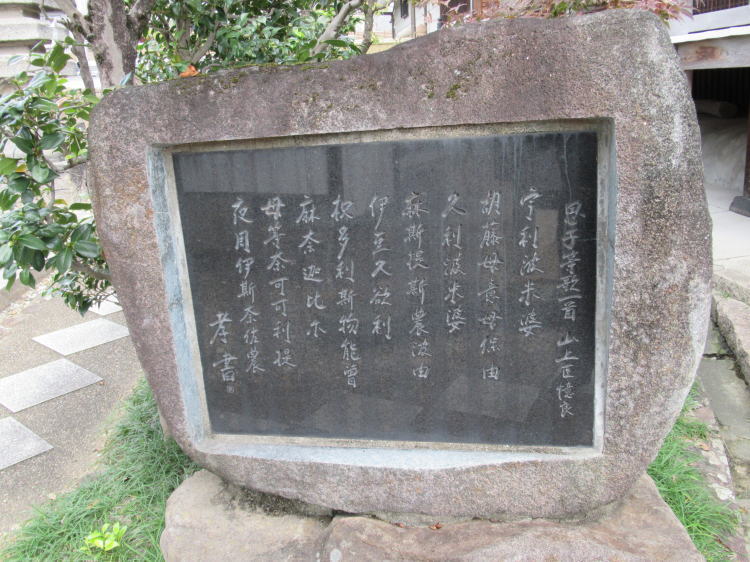 思子等歌一首 山上臣憶良
宇利波米婆
胡藤母意母保由
久利波米婆
麻斯提斯農波由
伊豆久欲利
枳多利斯物能曽
麻奈迦比尓
母等奈可可利提
夜周伊斯奈佐農
孝書